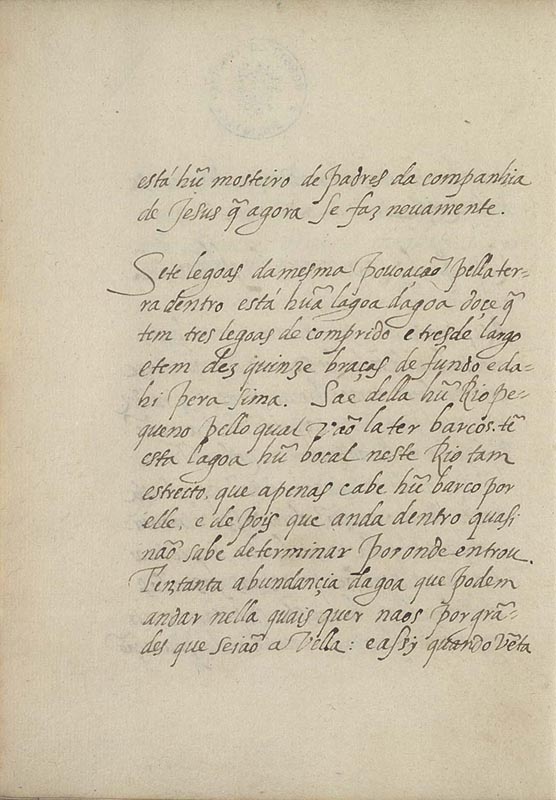 está hũ mosteiro de padres da companhia
de Jesus q̃ agora se faz nouamente.
Sete legoas da mesma pouoação pella ter-
ra dentro está hũa lagoa dagoa doçe q̃
tem tres legoas de comprido e tres de largo
e tem dez quinze braças de fundo e da-
hi pera sima. Sae della hũ Rio pe-
queno pello qual vão la ter barcos. tẽ
esta lagoa hũ bocal neste Rio tam
estrecto, que apenas cabe hũ barco por
elle, e depois que anda dentro quasi
não sabe determinar por onde entrou.
Tem tanta abundançia dagoa que podem
andar nella quais quer naos por grã-
des que seião a vella: e assy quando vẽta